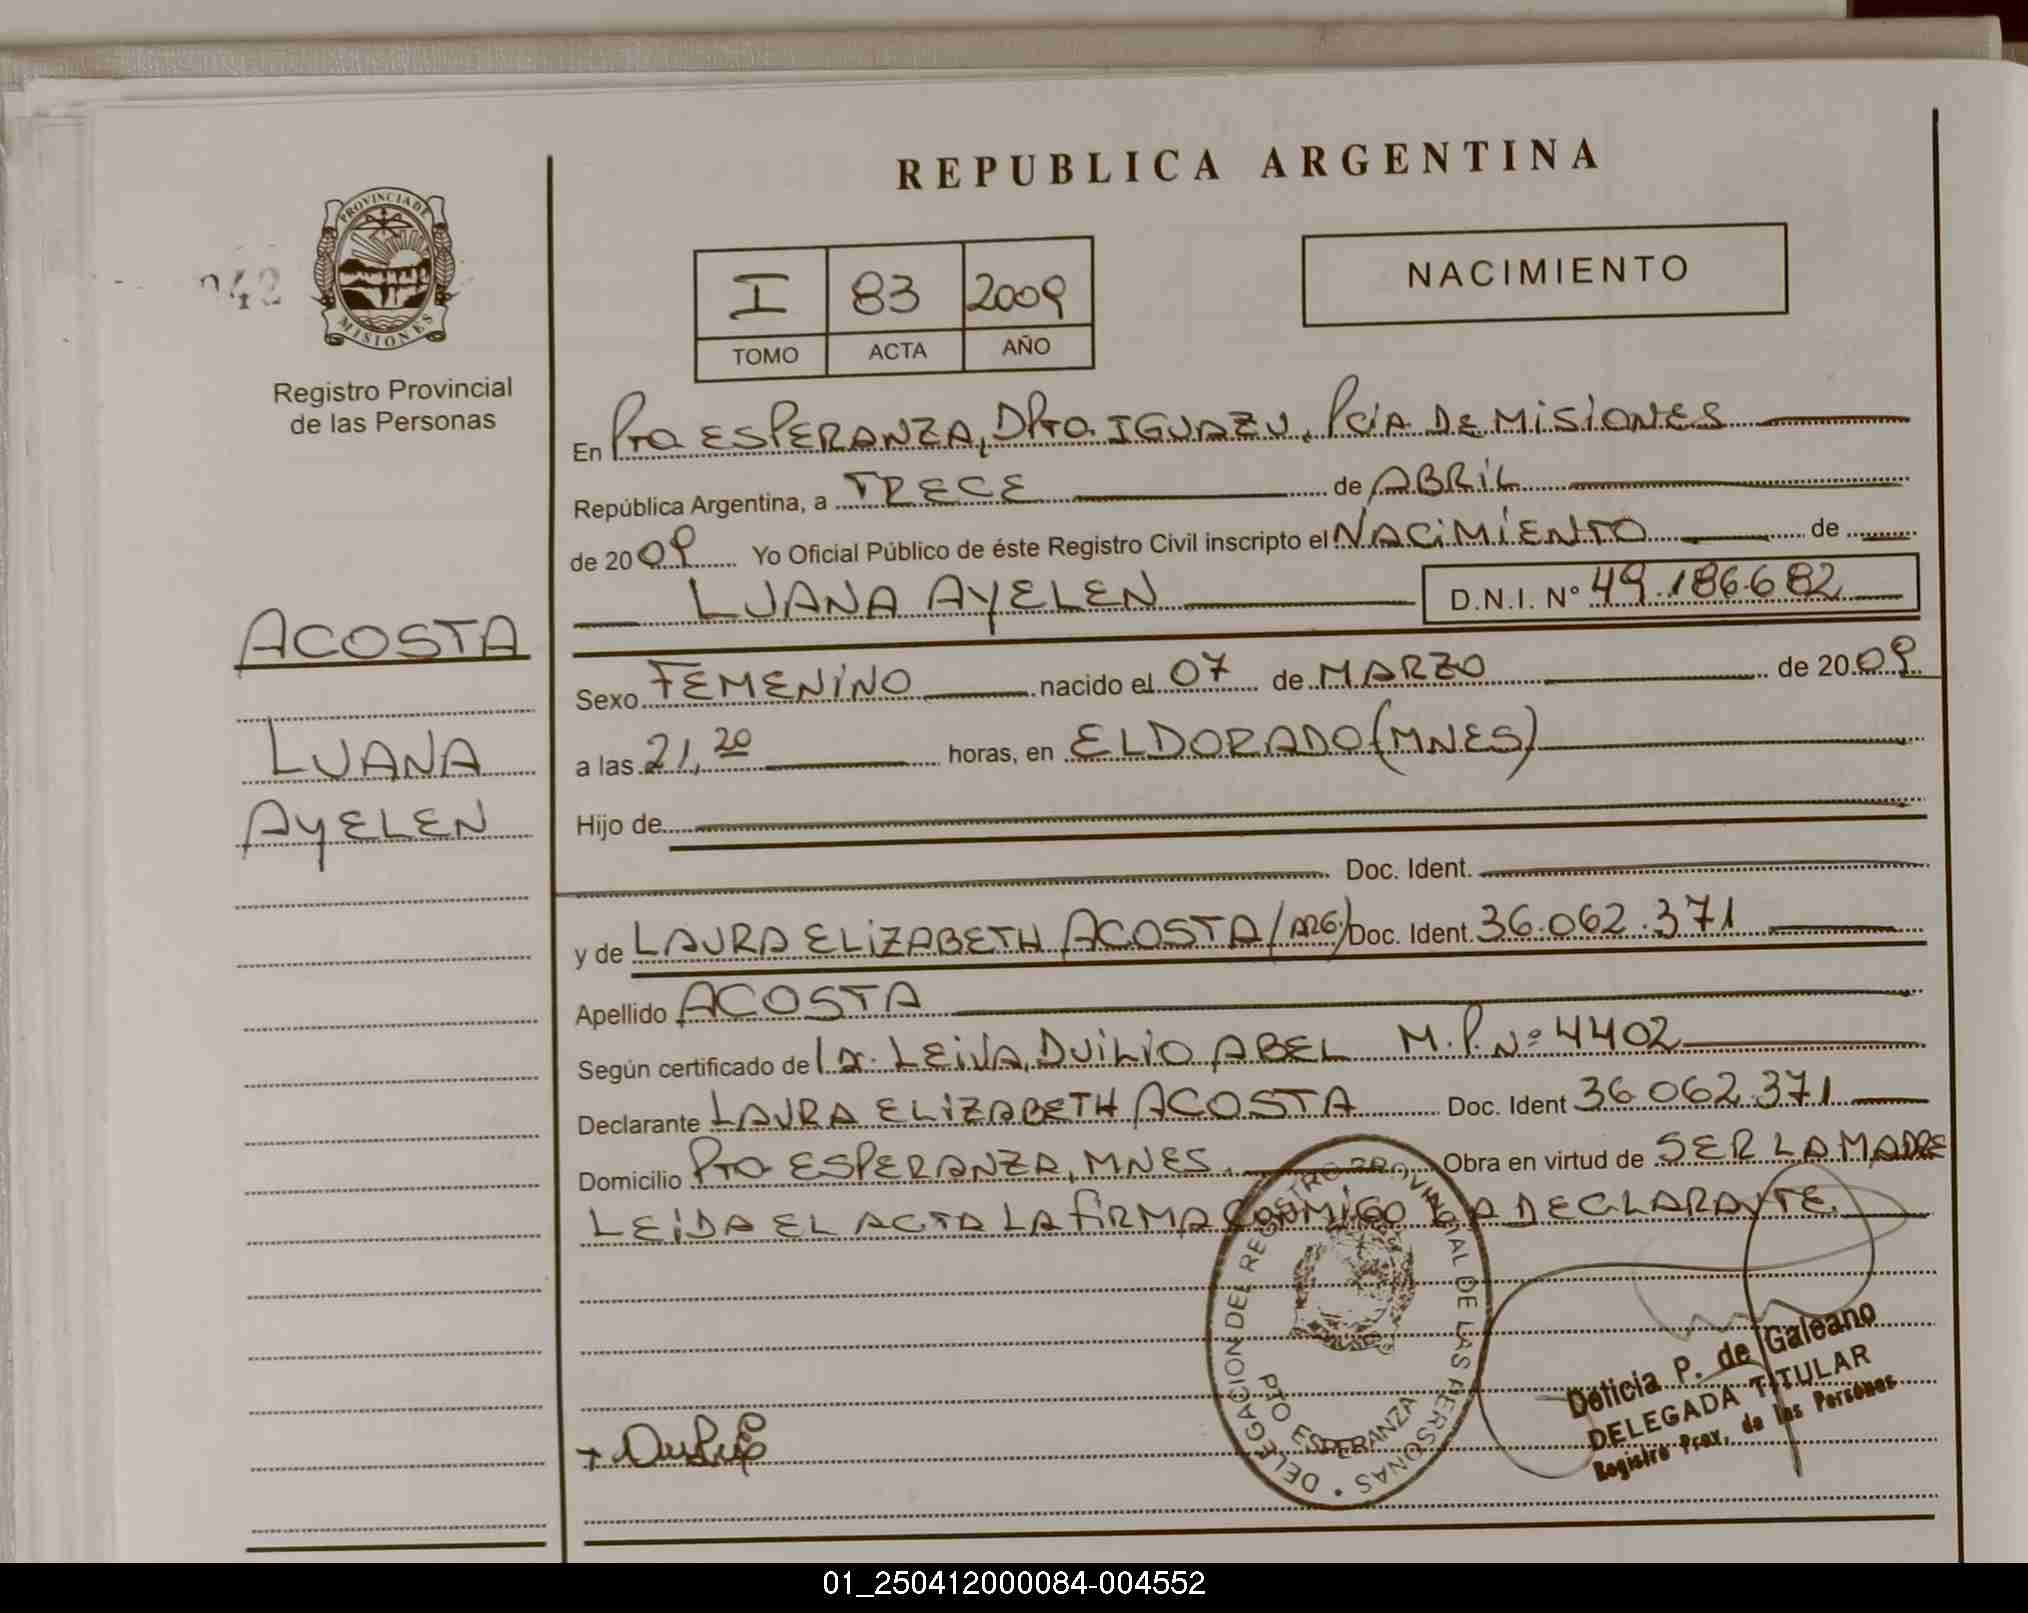 REPUBLICA ARGENTINA
PROVINCIA DE MISIONES
Registro Provincial
de las Personas
I 83 2009
TOMO ACTA AÑO
NACIMIENTO
En Pto ESPERANZA, DPto IGUAZU, PCiA DE MiSiONES
República Argentina, a TRECE de ABRiL
de 2009 Yo Oficial Público de éste Registro Civil inscripto el NACiMiENTO de
LUANA AYELEN D.N.I. Nº 49.186.682
ACOSTA
LUANA
AYELEN
Sexo FEMENiNO nacido el 07 de MARZO de 2009
a las 21,20 horas, en ELDORADO (MNES)
Hijo de
Doc. Ident.
y de LAURA ELiZABETH ACOSTA (ARG.) Doc. Ident. 36.062.371
Apellido ACOSTA
Según certificado de LEiVA, DUiLiO ABEL M.P. Nº 4402
Declarante LAURA ELiZABETH ACOSTA Doc. Ident 36.062.371
Domicilio Pto ESPERANZA, MNES. Obra en virtud de SER LA MADRE
LEiDA EL ACTA LA FiRMA CONMiGO LA DECLARANTE.
DELEGACION DEL REGISTRO PROVINCIAL DE LAS PERSONAS
PTO ESPERANZA
Delicia P. de Galeano
DELEGADA TITULAR
Registro Prov. de las Personas
01_250412000084-004552